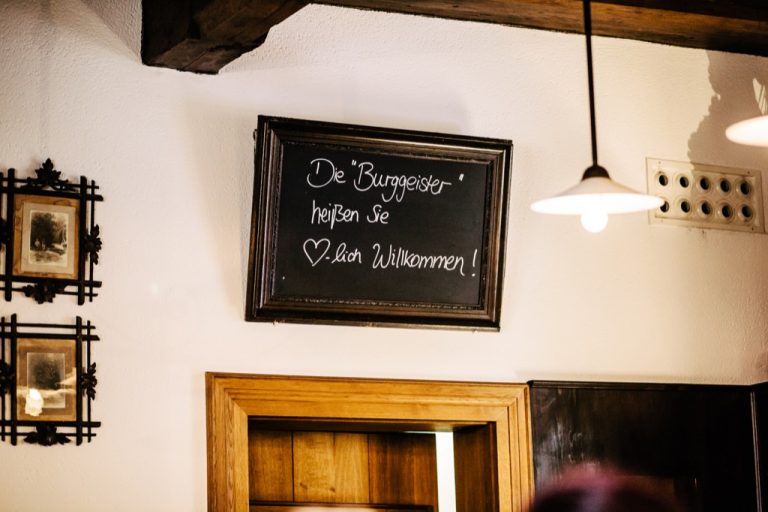 Die "Burggeister"
heißen Sie
♡-lich Willkommen!